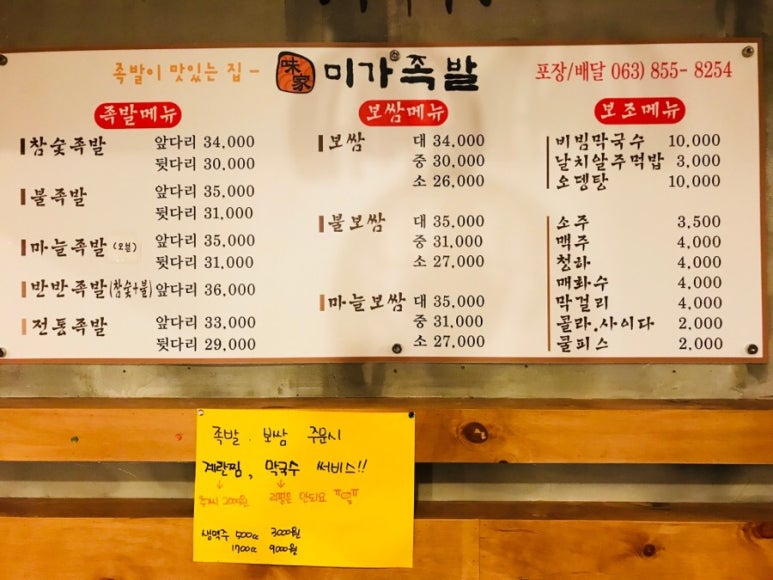 족발이 맛있는 집 -
味家 미가족발
포장/배달 063) 855- 8254
족발메뉴
참숯족발 앞다리 34,000
뒷다리 30,000
불족발 앞다리 35,000
뒷다리 31,000
마늘족발 (오븐) 앞다리 35,000
뒷다리 31,000
반반족발(참숯+불) 앞다리 36,000
전통족발 앞다리 33,000
뒷다리 29,000
보쌈메뉴
보쌈 대 34,000
중 30,000
소 26,000
불보쌈 대 35,000
중 31,000
소 27,000
마늘보쌈 대 35,000
중 31,000
소 27,000
보조메뉴
비빔막국수 10,000
날치알주먹밥 3,000
오뎅탕 10,000
소주 3,500
맥주 4,000
청하 4,000
매화수 4,000
막걸리 4,000
콜라.사이다 2,000
쿨피스 2,000
족발 . 보쌈 주문시
계란찜, 막국수 써비스!!
추가시 2000원 리필은 안되요
생맥주 500cc 3000원
1700cc 9000원